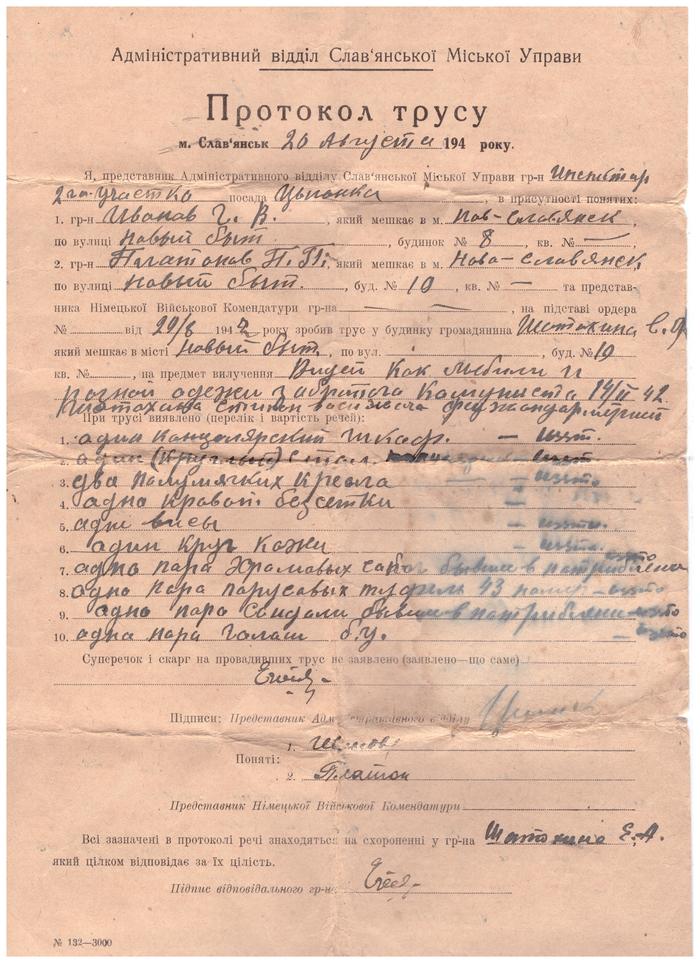 Адміністративний відділ Слав'янської Міської Управи
Протокол трусу
м. Слав'янськ 20 Августа 194 року.
Я, представник Адміністративного відділу Слав'янської Міської Управи гр-н Инспектар
2го участка посада Цыпонка, в присутності понятих:
1. гр-н Иванов Г. В., який мешкає в м. Нов-Славянск,
по вулиці новый быт, будинок № 8, кв. № —
2. гр-н Платонов П. П., який мешкає в м. Ново-Славянск,
по вулиці новый быт., буд. № 10, кв. № — та представ-
ника Німецької Військової Комендатури гр-на —, на підставі ордера
№ від 20/8 1942 року зробив трус у будинку громадянина
який мешкає в місті новый быт, по вул., буд. № 10
кв. №, на предмет вилучення Вищей как мыбили и
разной одежи забратога Камуниста 14/II 42
При трусі виявлено (перелік і вартість речей):
1. адин канцолярский шкаф. — изят.
2. адин (круглый) стол. изят
3. два полумяхких кресла — " — изято
4. адна кровать без сетки — изято
5. адни висы — изято.
6. адин круг кожи — изято.
7. адна пара Хромавых сапог бывше в патриблении изято
8. адно пара парусавых туфель 43 номер — изято
9. адно пара Сандали бывше в патриблени — изято
10. адна пара галаш б.у. — изято
Суперечок і скарг на провадивших трус не заявлено (заявлено—що саме)
Підписи: Представник Адміністративного відділу
Поняті:
1.
2. Платон
Представник Німецької Військової Комендатури
Всі зазначені в протоколі речі знаходяться на схороненні у гр-на Шатохина Е. А.
який цілком відповідає за їх цілість.
Підпис відповідального гр-на
№ 132—3000